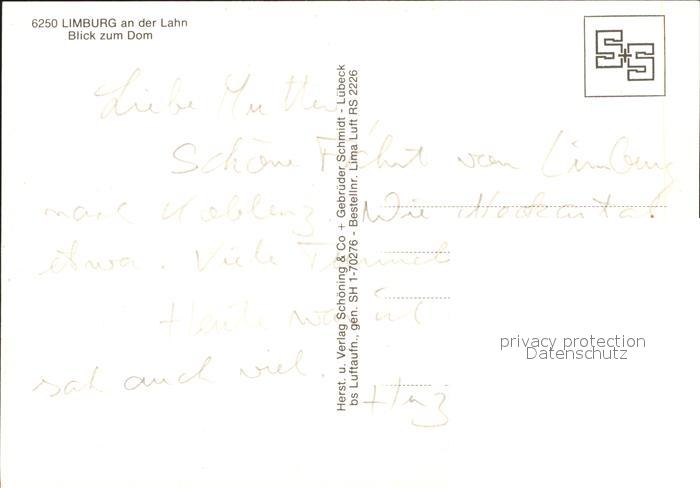 6250 LIMBURG an der Lahn
Blick zum Dom
S+S
Liebe Mutter
Schöne Fahrt von Limburg
nach Koblenz. Wie Neckartal
etwa. Viele Tunnel
Heute war ich
sah auch viel.
Herst. u. Verlag Schöning & Co + Gebrüder Schmidt - Lübeck
bs Luftaufn., gen. SH 1-70276 - Bestellnr. Lima Luft RS 2226
privacy protection
Datenschutz